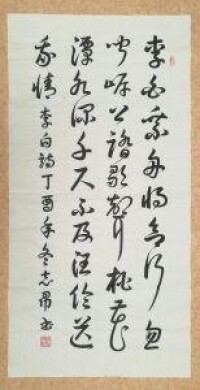 李白乘舟将欲行忽
闻岸上踏歌声桃花
潭水深千尺不及汪伦送
我情 李白诗丁酉年冬志昂书